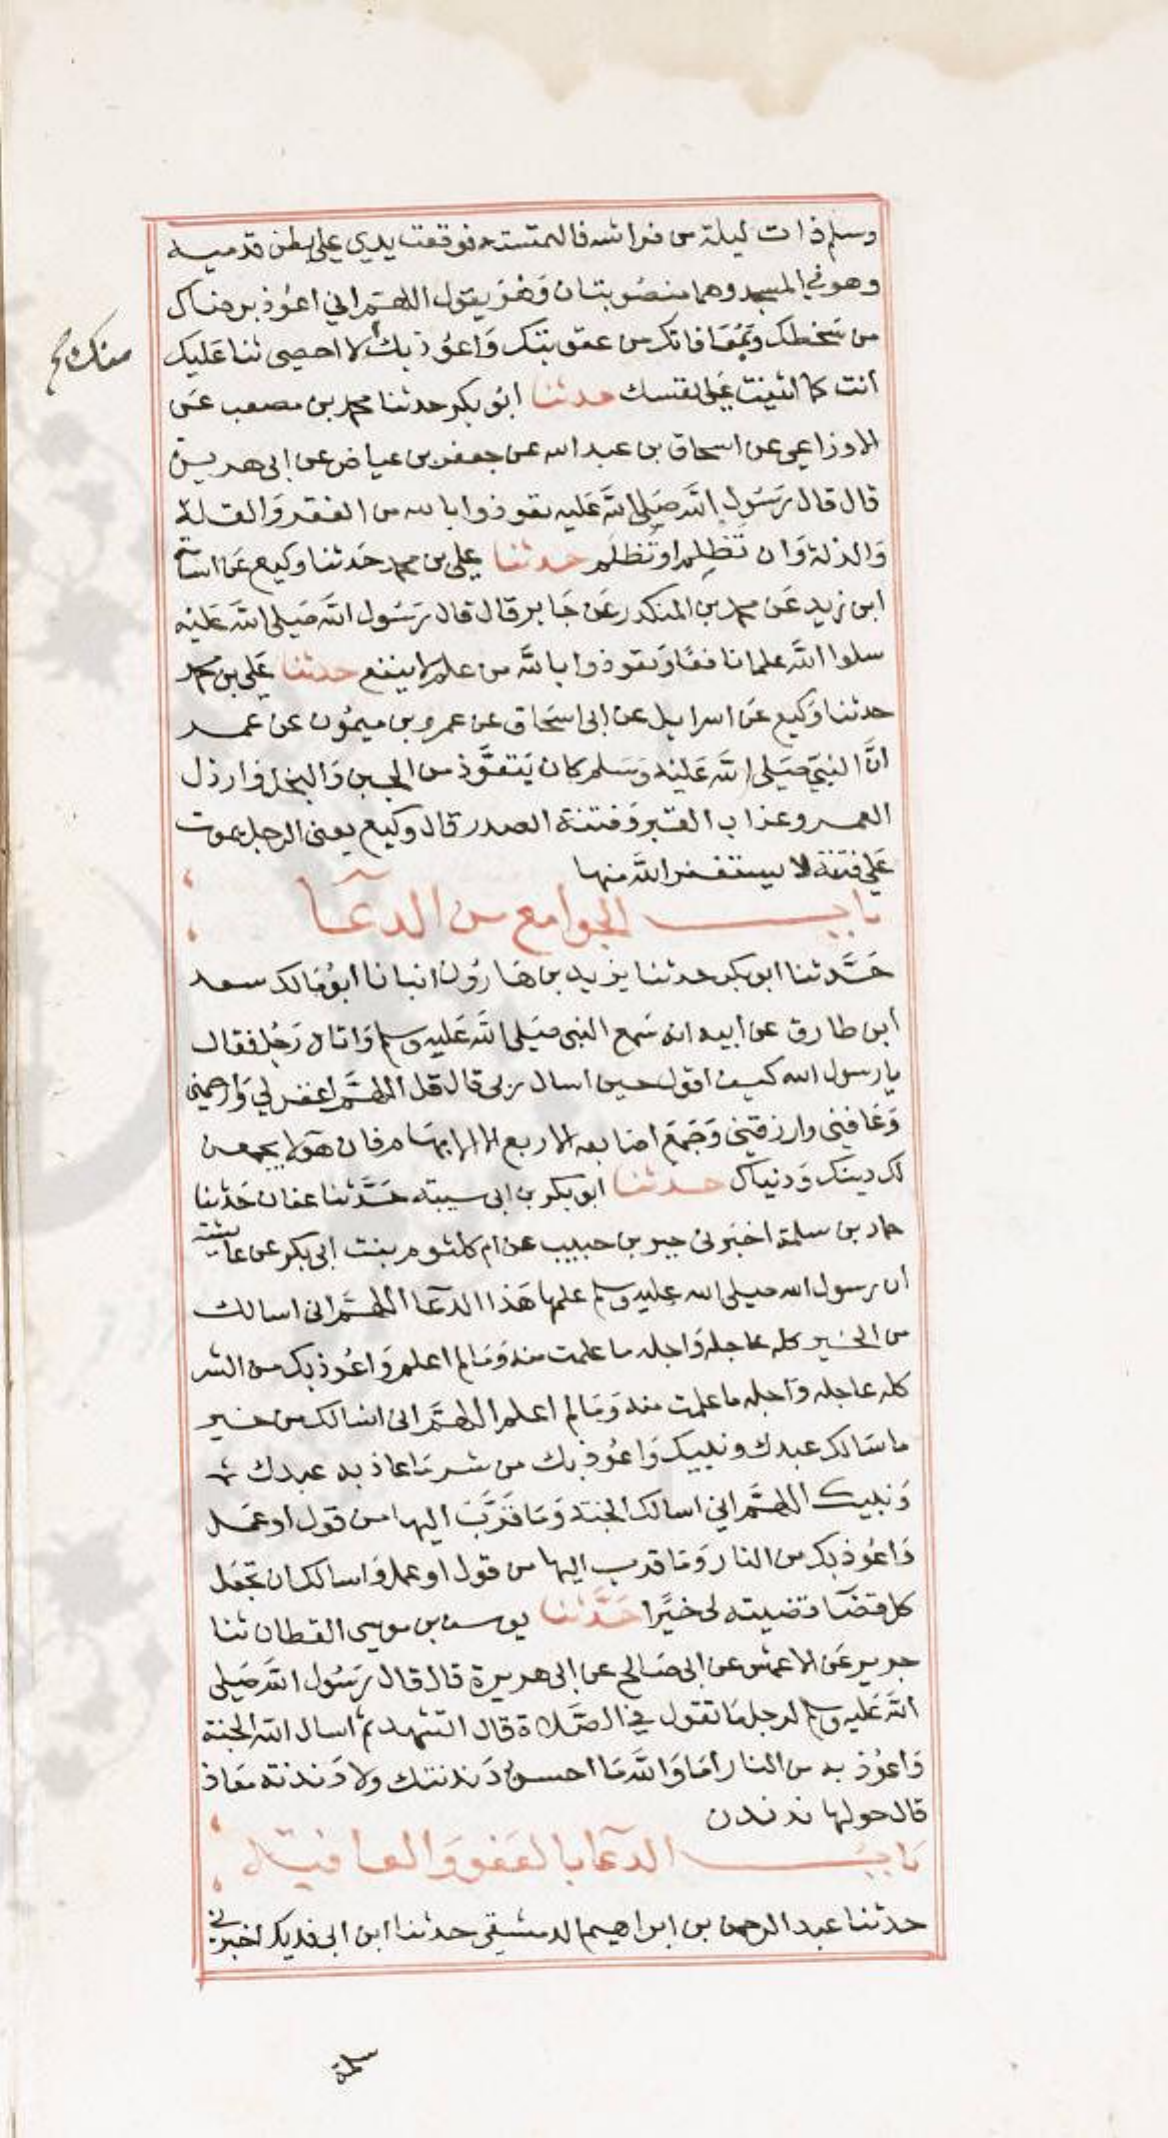 وسلم ذات ليلة من فراشه فالتمسته فوقعت يدي على بطن قدميه
وهو في المسجد وهما منصوبتان وهو يقول اللهم اني اعوذ برضاك
من سخطك وبمعافاتك من عقوبتك واعوذ بك لا احصي ثنا عليك
منك صح
انت كما اثنيت على نفسك حدثنا ابو بكر حدثنا محمد بن مصعب عن
الاوزاعي عن اسحاق بن عبد الله عن جعفر بن عياض عن ابي هريرة
قال قال رسول الله صلى الله عليه تعوذوا بالله من الفقر والقلة
والذلة وان تظلم او تظلم حدثنا علي بن محمد حدثنا وكيع عن اسامة
ابن زيد عن محمد بن المنكدر عن جابر قال قال رسول الله صلى الله عليه
سلوا الله علما نافعا وتعوذوا بالله من علم لا ينفع حدثنا علي بن محمد
حدثنا وكيع عن اسرايل عن ابي اسحاق عن عمرو بن ميمون عن عمر
ان النبي صلى الله عليه وسلم كان يتعوذ من الجبن والبخل وارذل
العمر وعذاب القبر وفتنة الصدر قال وكيع يعني الرجل يموت
على فتنة لا يستغفر الله منها
باب الجوامع من الدعآ
حدثنا ابو بكر حدثنا يزيد بن هارون انبانا ابو مالك سعد
ابن طارق عن ابيه انه سمع النبي صلى الله عليه وسلم واتاه رجل فقال
يا رسول الله كيف اقول حين اسال ربي قال قل اللهم اغفر لي وارحمني
وعافني وارزقني وجمع اصابعه الاربع الا الابهام فان هولا يجمعن
لك دينك ودنياك حدثنا ابو بكر بن ابي شيبة حدثنا عفان حدثنا
حماد بن سلمة اخبرني جبر بن حبيب عن ام كلثوم بنت ابي بكر عن عايشة
ان رسول الله صلى الله عليه وسلم علمها هذا الدعآ اللهم اني اسالك
من الخير كله عاجله واجله ما علمت منه وما لم اعلم واعوذ بك من الشر
كله عاجله واجله ما علمت منه وما لم اعلم اللهم اني اسالك من خير
ما سالك عبدك ونبيك واعوذ بك من شر ما عاذ به عبدك
ونبيك اللهم اني اسالك الجنة وما قرب اليها من قول او عمل
واعوذ بك من النار وما قرب اليها من قول او عمل واسالك ان تجعل
كل قضآ قضيته لي خيرا حدثنا يوسف بن موسى القطان ثنا
جرير عن الاعمش عن ابي صالح عن ابي هريرة قال قال رسول الله صلى
الله عليه وسلم لرجل ما تقول في الصلاة قال التشهد ثم اسال الله الجنة
واعوذ به من النار اما والله ما احسن دندنتك ولا دندنة معاذ
قال حولها ندندن
باب الدعآ بالعفو والعافية
حدثنا عبد الرحمن بن ابراهيم الدمشقي حدثنا ابن ابي فديك اخبرني
سلمة